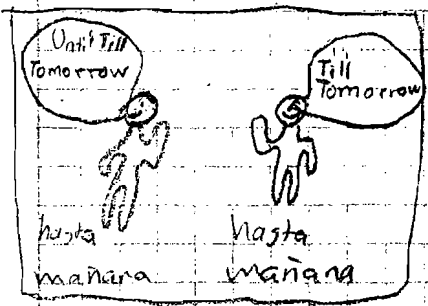 Until Till
Tomorrow
Till
Tomorrow
hasta
mañana
hasta
mañana